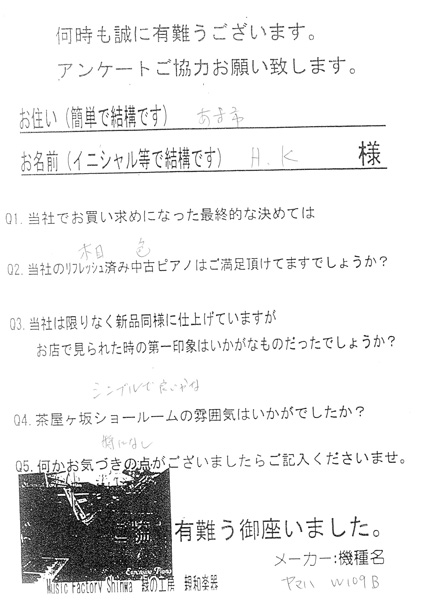 何時も誠に有難うございます。
アンケートご協力お願い致します。
お住い（簡単で結構です） あま市
お名前（イニシャル等で結構です） H.K 様
Q1.当社でお買い求めになった最終的な決めては
色
Q2.当社のリフレッシュ済み中古ピアノはご満足頂けてますでしょうか？
Q3.当社は限りなく新品同様に仕上げていますが
お店で見られた時の第一印象はいかがなものだったでしょうか？
シンプルで良いかな
Q4.茶屋ヶ坂ショールームの雰囲気はいかがでしたか？
特になし
Q5.何かお気づきの点がございましたらご記入くださいませ。
有難う御座いました。
メーカー:機種名
Music Factory Shinwa 緑の工房 親和楽器
ヤマハ W109B